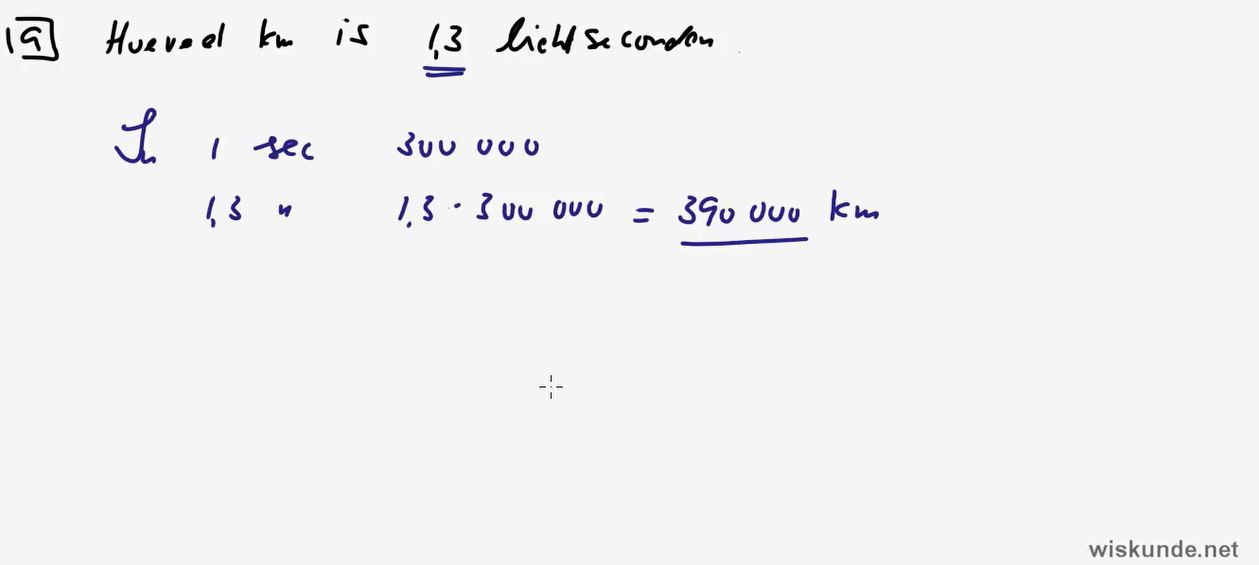 19 Hoeveel km is 1,3 lichtseconden
In 1 sec 300 000
1,3 " 1,3 · 300 000 = 390 000 km
wiskunde.net